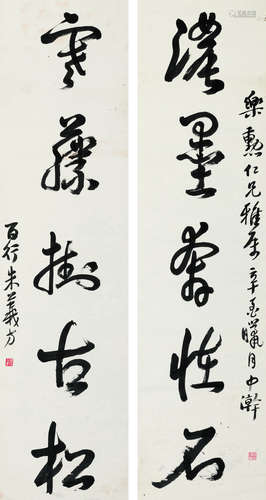 濃墨奔怪石
樂勳仁兄雅屬 辛亥臘月中澣
寒藤掛古松
百行朱義方